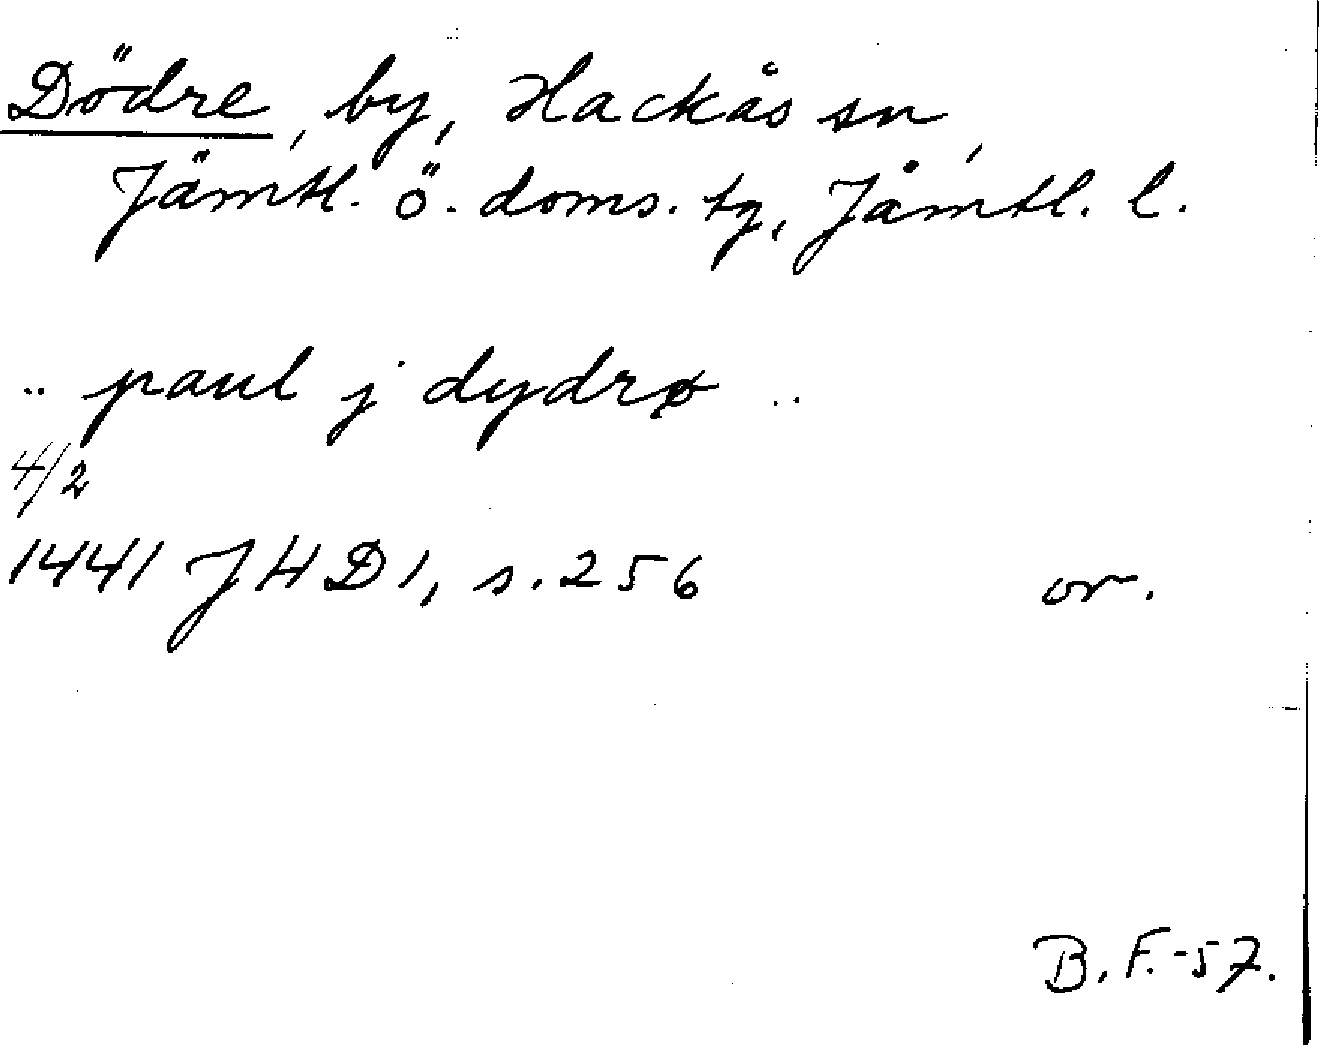 Dödre, by, Hackås sn,
Jämtl. ö. doms. tg, Jämtl. l.
.. paul j dydrø ..
4/2
1441 JHD1, s. 256 or.
B.F.-57.